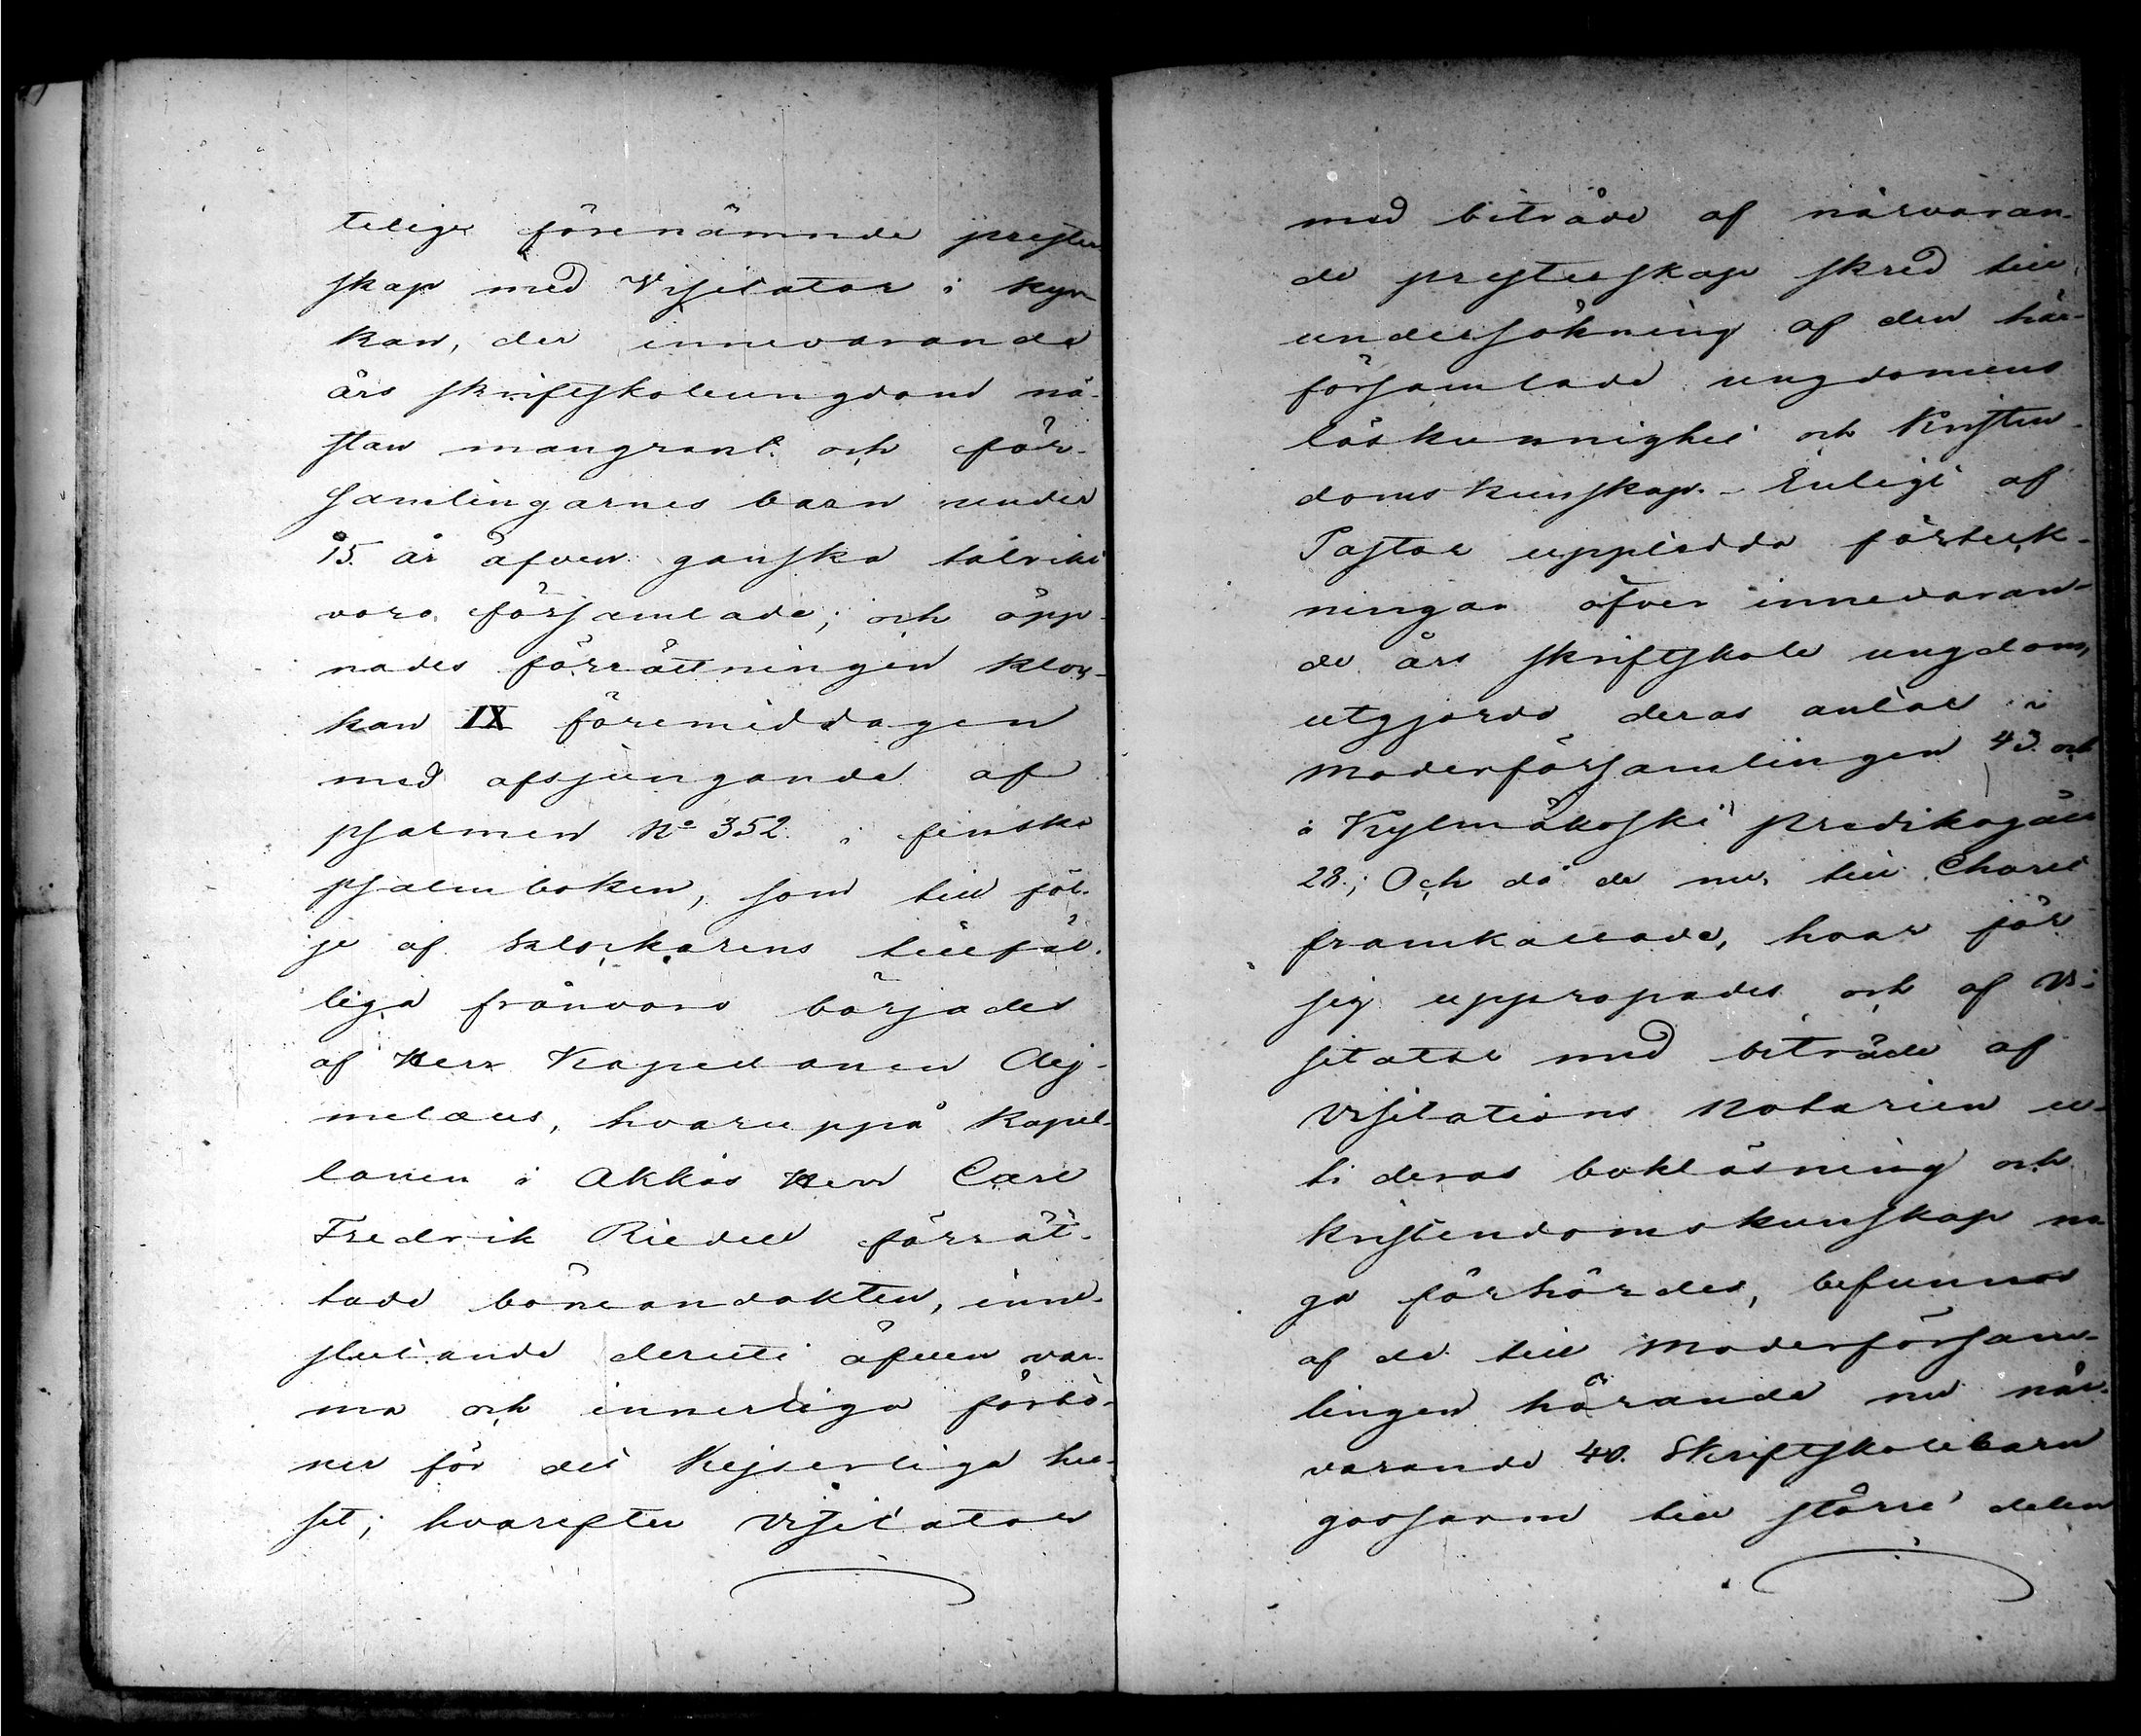 telige förenämnde prester
skap med Visitator i kyr
kan, der innevarande
års skriftskoleungdom nä-
stan mangrant och för-
samlingarnes barn under
15. år äfven ganska talrikt
voro församlade; och öpp-
nades förrättningen kloc-
kan IX föremiddagen
med afsjungande af
psalmen No 352. i finska
psalmboken, som till föl-
je af klockarens tillfäl-
liga frånvaro börjades
af Herr Kapellanen Aej-
melæus, hvaruppå kapel-
lanen i Akkas Herr Carl
Fredrik Riedell förrät-
tade böneandakten, inne-
slutande deruti äfven var-
ma och innerliga förbö-
ner för det Kejserliga hu-
set; hvarefter Visitator
med biträde af närvaran-
de presterskap skred till
undersökning af den här-
församlade ungdomens
läskunnighet och Kristen-
domskunskap. - Enligt af
Pastor upplästa förteck-
ningar öfver innevaran-
de års skriftskole ungdom,
utgjorde deras antal i
Moderförsamlingen 43. och
i Kylmäkoski predikogäll
28.; Och då de nu, till Choret
framkallade, hvar för
sig uppropades och af Vi-
sitator med biträde af
Visitations Notarien u-
ti deras bokläsning och
kristendomskunskap no
ga förhördes, befunnos
af de till Moderförsam-
lingen hörande nu när-
varande 40. Skriftskolebarn
gossarne till större delen